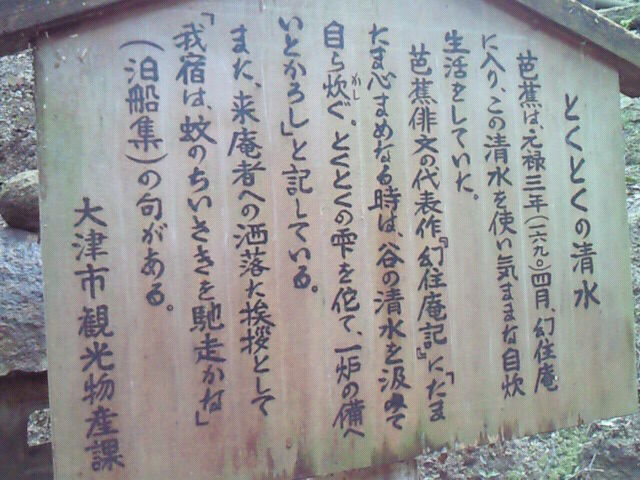 とくとくの清水
芭蕉は、元禄三年(一六九〇)四月、幻住庵
に入り、この清水を使い気ままな自炊
生活をしていた。
芭蕉俳文の代表作『幻住庵記』に、「たま
たま心まめなる時は、谷の清水を汲みて
自ら炊ぐ。とくとくの雫を侘て、一炉の備へ
かし
いとかろし」と記している。
また、来庵者への洒落た挨拶として
「我宿は、蚊のちいさきを馳走かな」
(泊船集)の句がある。
大津市観光物産課